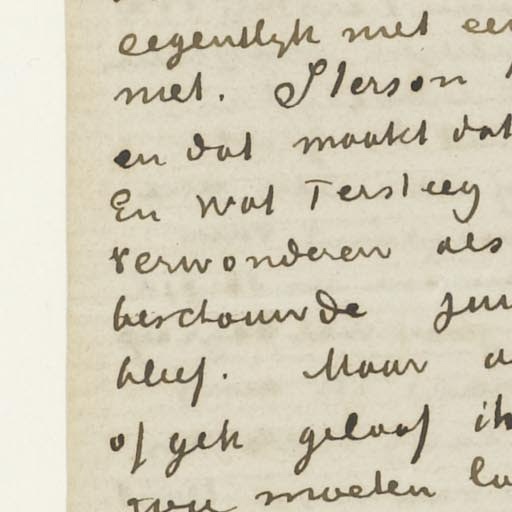 eegentlyk met een
met. Iterson
en dat maakt dat
En wat Tersteeg
verwonderen als
beschouwde
bleef. Maar
of gek geloof ik
zou moeten